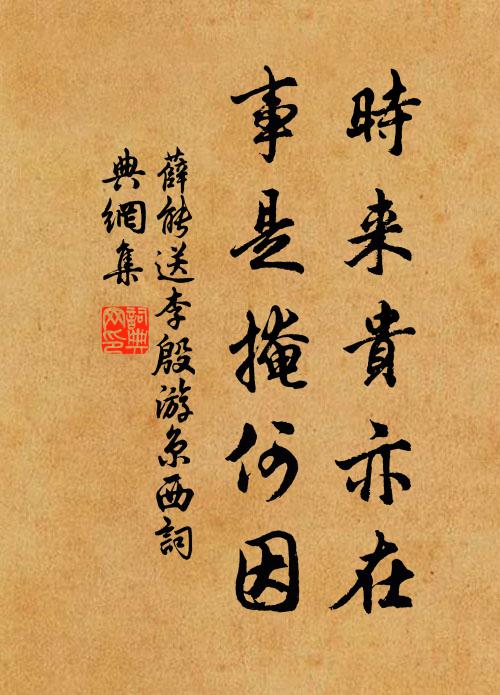 時来貴亦在
事是掩何因
薛能送李殷游京西詞
典網集
詞典
网印